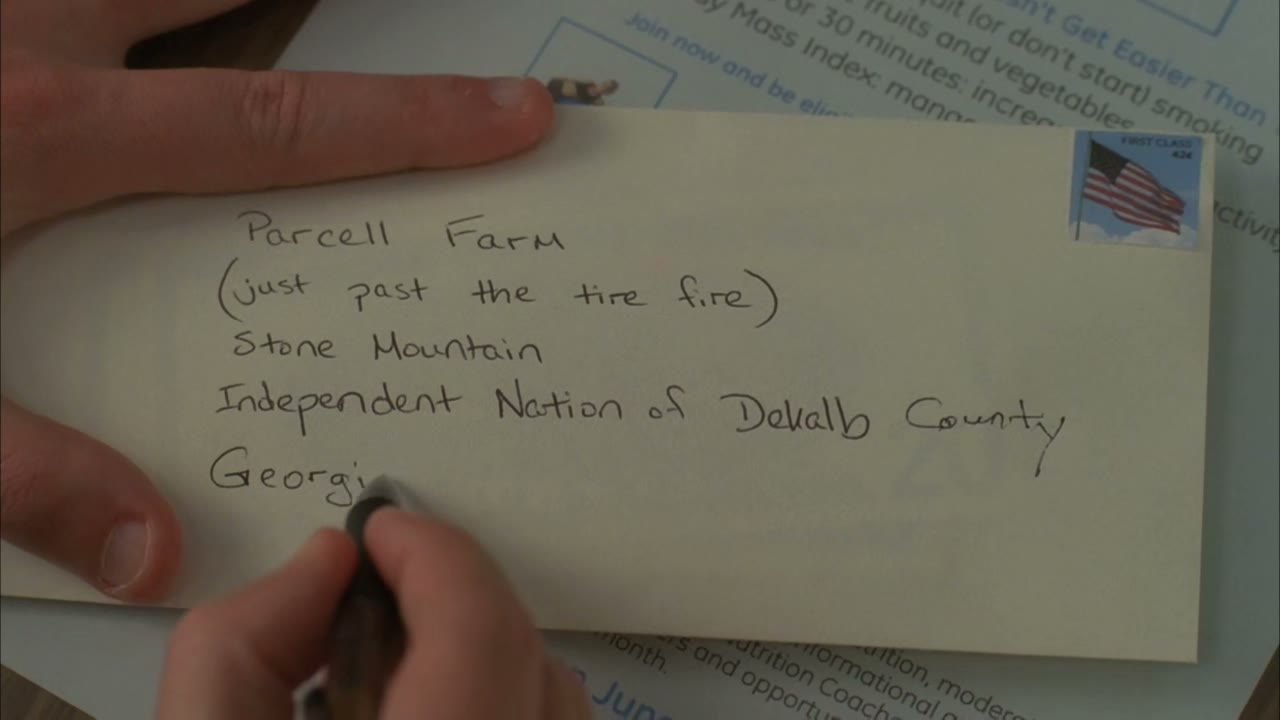 Parcell Farm
(just past the tire fire)
Stone Mountain
Independent Nation of Dekalb County
Georgi
FIRST CLASS
42¢
n't Get Easier Than
(or don't start) smoking
fruits and vegetables
or 30 minutes: incre
y Mass Index: mana
Join now and be eli
ctivit
nth.
rs and opportu
utrition Coache
nformational
ition, modera
n June